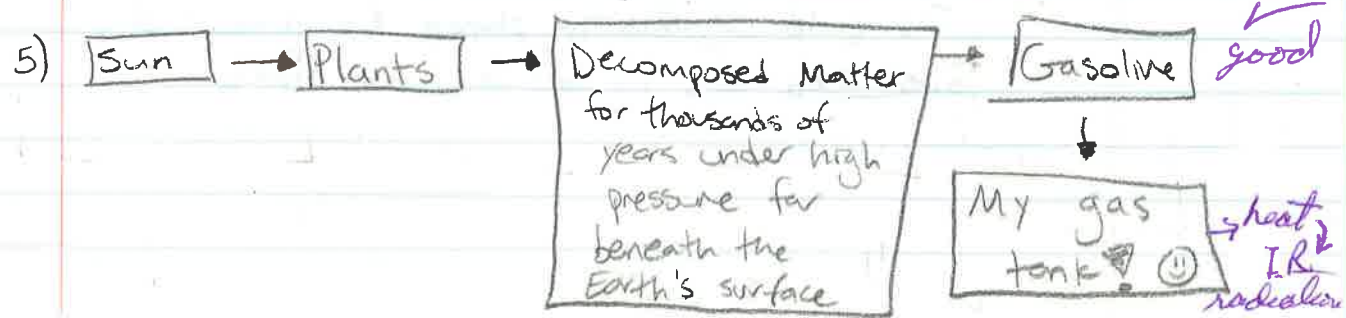 5) Sun → Plants → Decomposed Matter
for thousands of
years under high
pressure far
beneath the
Earth's surface
→ Gasoline
good
My gas
tank! ☺
→ heat
I.R.
radiation